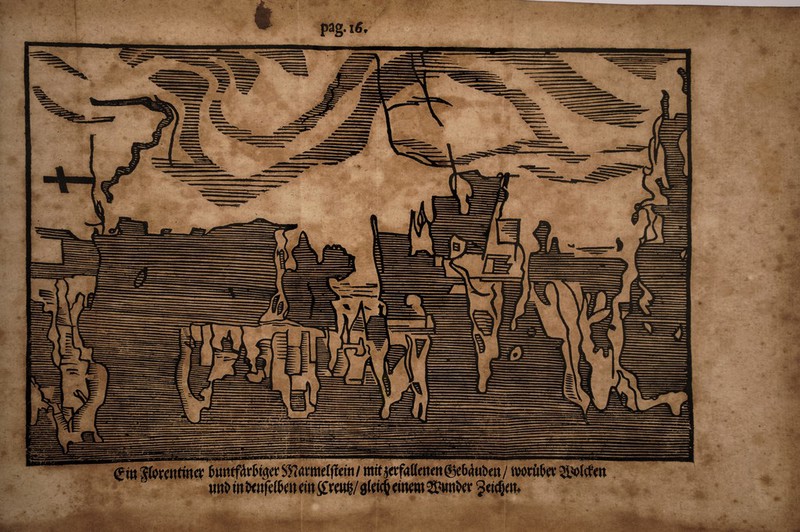 pag. 16.
Ein Florentiner buntfärbiger Marmelstein/ mit zerfallenen Gebäuden/ worüber Wolcken
und in denselben ein Creutz/ gleich einem Wunder Zeichen.